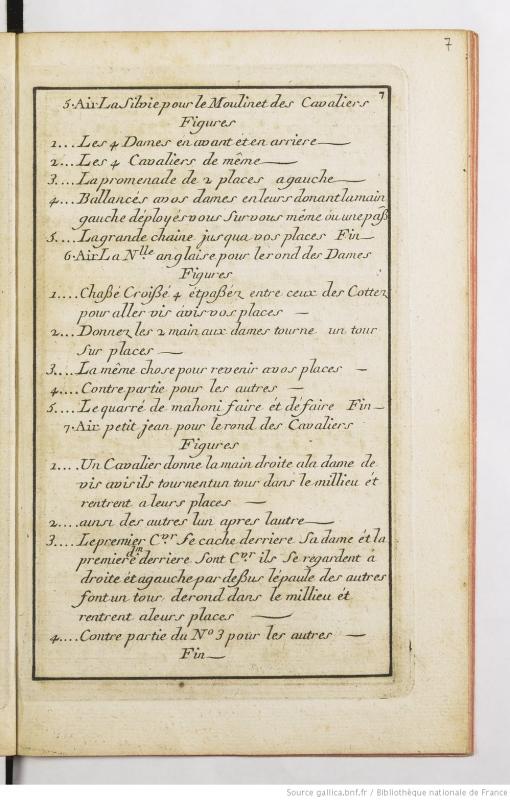 7
7
5. Air La Silvie pour le Moulinet des Cavaliers
Figures
1... Les 4 Dames en avant et en arriere
2... Les 4 Cavaliers de même
3.... La promenade de 2 places agauche
4... Ballancés avos dames enleurs donant lamain
gauche déployés vous Sur vous même ou une paß
5.... Lagrande chaine jusqua vos places Fin
6. Air La Nlle anglaise pour lerond des Dames
Figures
1.... Chaßé Croißé 4 et paßéz entre ceux des Cottez
pour aller vis avis vos places
2... Donnez les 2 main aux dames tourne un tour
Sur places
3.... La même chose pour revenir avos places
4.... Contre partie pour les autres
5.... Le quarré de mahoni faire ét défaire Fin
7. Air petit jean pour lerond des Cavaliers
Figures
1.... Un Cavalier donne la main droite ala dame de
vis avis ils tournentun tour dans le millieu ét
rentrent a leurs places
2.... ainsi des autres lun apres lautre
3.... Lepremier Cver Se cache derriere Sa dame ét la
premiere dm derriere Sont Cver ils Se regardent a
droite ét agauche par deßus lépaule des autres
font un tour derond dans le millieu ét
rentrent aleurs places
4.... Contre partie du No 3 pour les autres
Fin
Source gallica.bnf.fr / Bibliothèque nationale de France